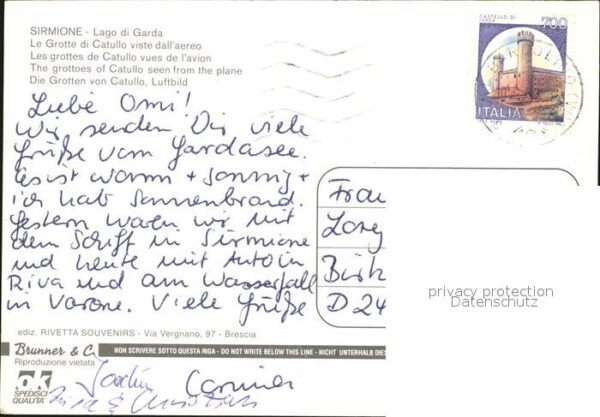 SIRMIONE - Lago di Garda
Le Grotte di Catullo viste dall'aereo
Les grottes de Catullo vues de l'avion
The grottoes of Catullo seen from the plane
Die Grotten von Catullo, Luftbild
CASTELLO DI
IVREA
700
ITALIA
Liebe Omi!
Wir senden Dir viele
Grüße vom Gardasee.
Es ist warm + sonnig +
ich hab Sonnenbrand.
Gestern waren wir mit
dem Schiff in Sirmione
und heute mit Auto in
Riva und am Wasserfall
in Varone. Viele Grüße
Frau
D 24
privacy protection
Datenschutz
ediz. RIVETTA SOUVENIRS - Via Vergnano, 97 - Brescia
Brunner & C
NON SCRIVERE SOTTO QUESTA RIGA - DO NOT WRITE BELOW THIS LINE - NICHT UNTERHALB DIES
Riproduzione vietata
ok
SPEDISCI
QUALITA'